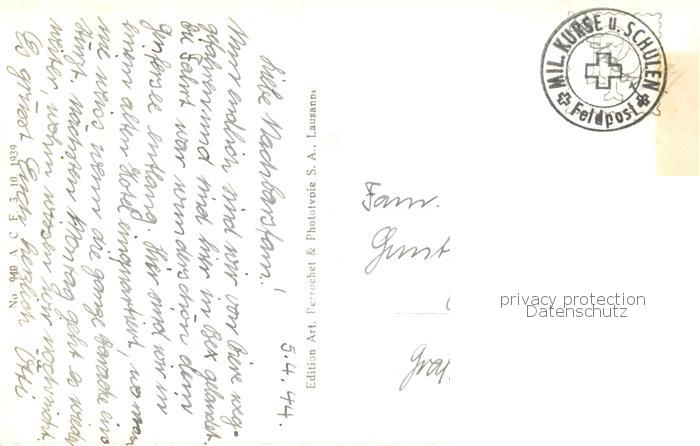 5.4.44.
Liebe Nachbarsfam.!
Nun endlich sind wir von Biere weg-
gefahren und sind hier in Bex gelandet.
Die Fahrt war wunderschön dem
Genfersee entlang. Hier sind wir in
einem alten Hotel einquartiert, wo man
nie weiss wenn die ganze Baracke ein-
stürzt. Nächsten Montag geht es wieder
weiter, wohin wissen wir noch nicht.
Es grüsst Euch herzlich
No 940 A C E 3. 10. 1939
Edition Art. Perrochet & Phototypie S. A., Lausanne
MIL. KURSE U. SCHULEN
Feldpost
Fam.
privacy protection
Datenschutz